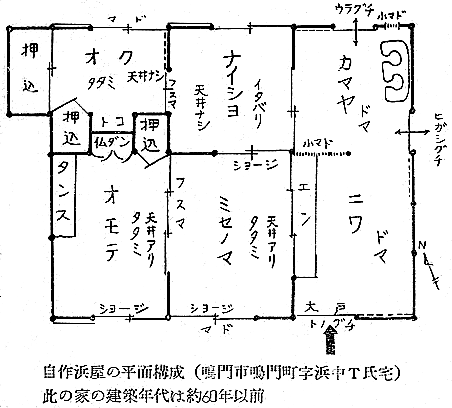 ウラグチ
小マド
マド
押込
オク
タタミ
天井ナシ
フスマ
ナイショ
天井ナシ
イタバリ
カマヤ
ドマ
ヒガシグチ
押込
トコ
仏ダン
押込
ショージ
小マド
タンス
オモテ
天井アリ
タタミ
フスマ
ミセノマ
天井アリ
タタミ
エン
ニワ
ドマ
N
ショージ
ショージ
マド
大戸
トノグチ
自作浜屋の平面構成（鳴門市鳴門町字浜中T氏宅）
此の家の建築年代は約60年以前